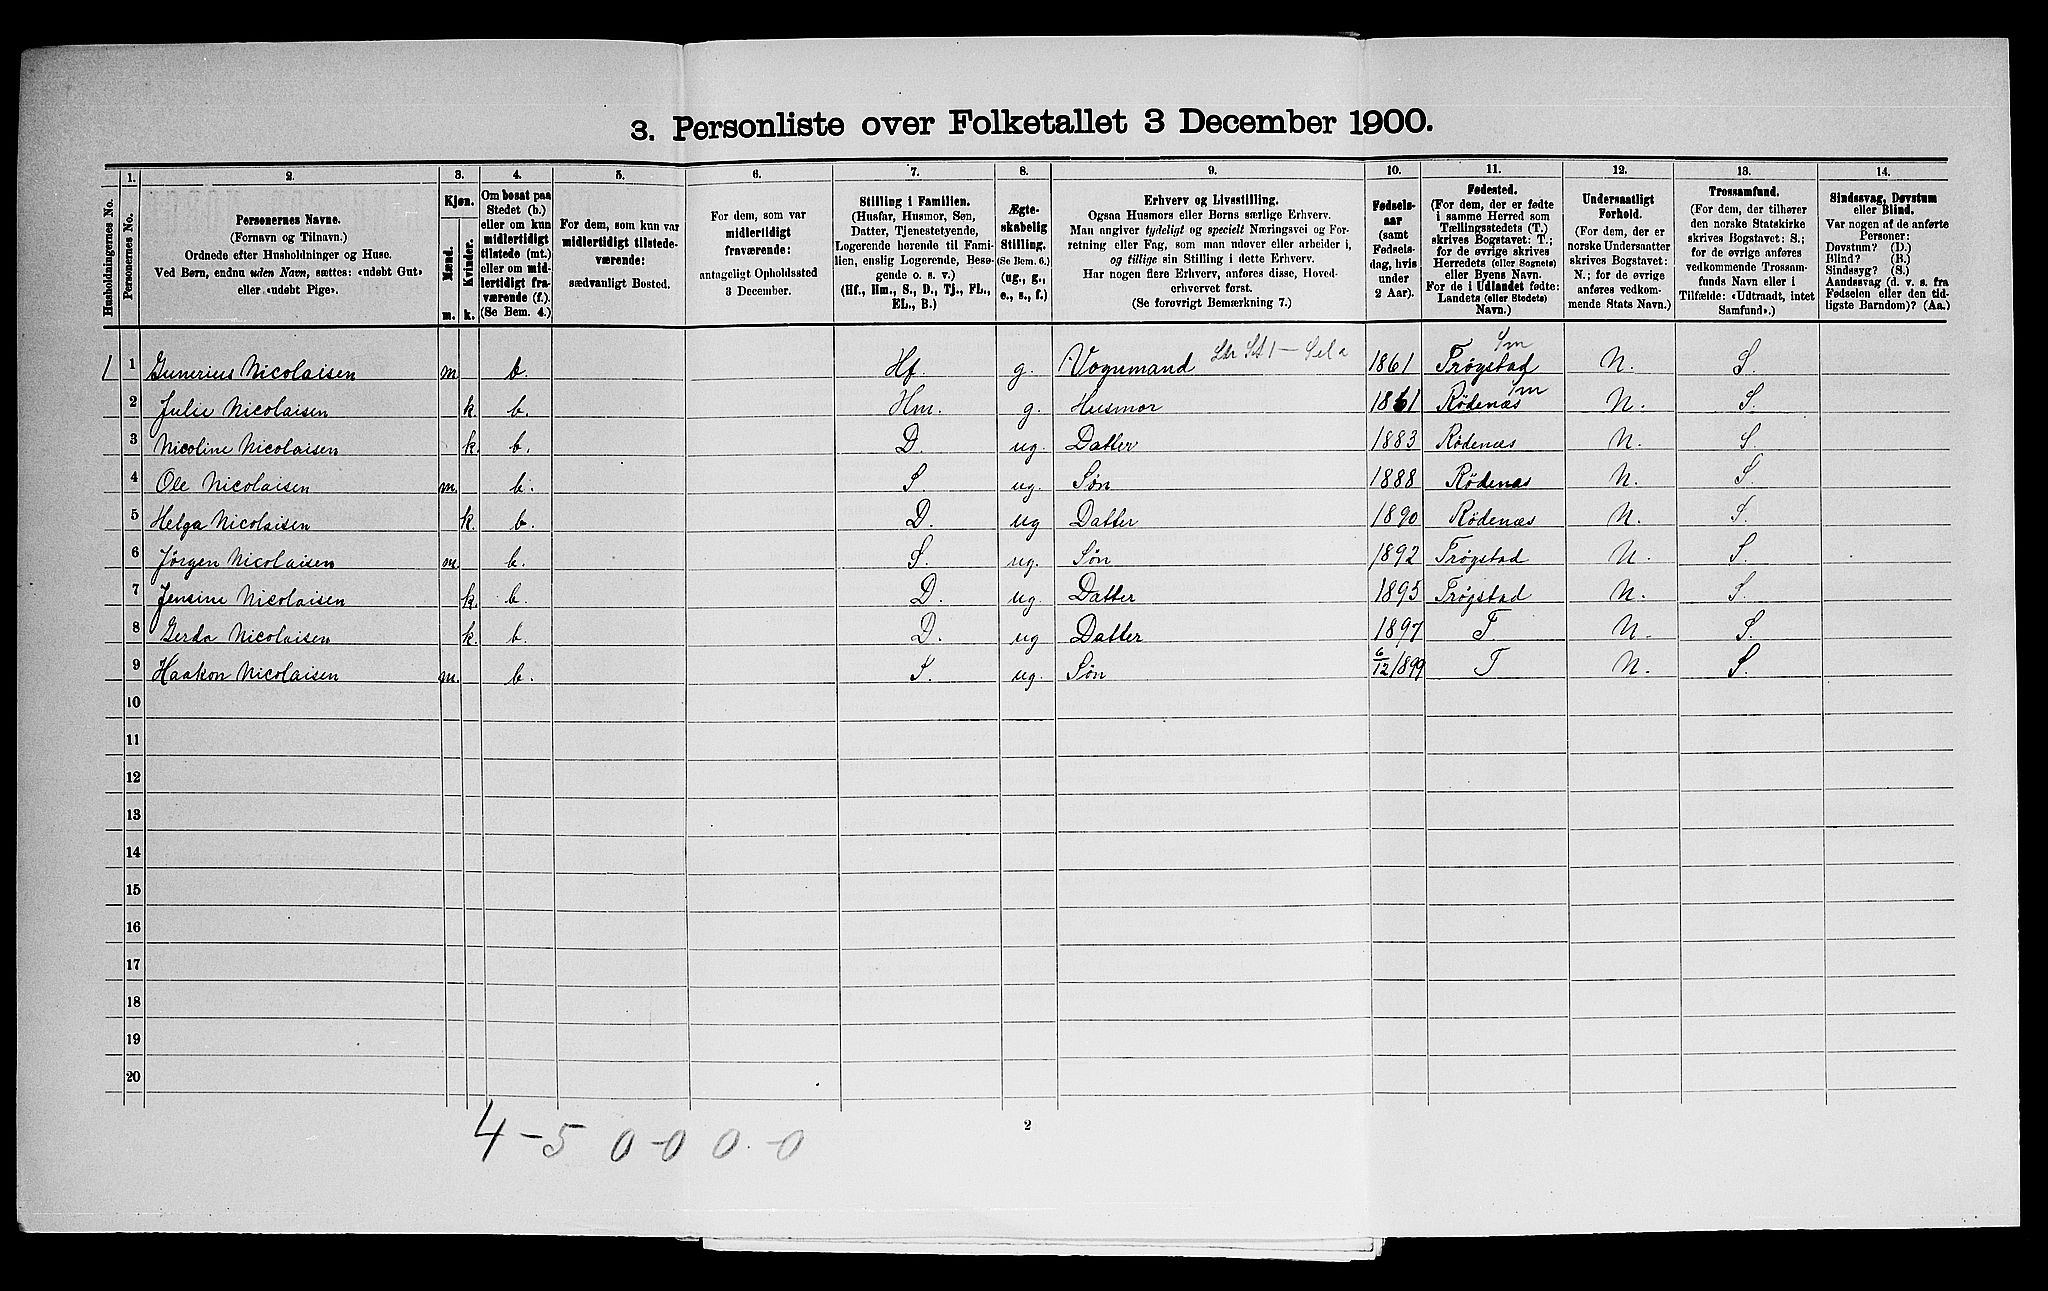 3. Personliste over Folketallet 3 December 1900.
1. 2. 3. 4. 5. 6. 7. 8. 9. 10. 11. 12. 13. 14.
Husholdningernes No.
Personernes No.
Personernes Navne.
(Fornavn og Tilnavn.)
Ordnede efter Husholdninger og Huse.
Ved Børn, endnu uden Navn, sættes: «udøbt Gut»
eller «udøbt Pige».
Kjøn.
Mænd.
Kvinder.
m. k.
Om bosat paa
Stedet (b.)
eller om kun
midlertidigt
tilstede (mt.)
eller om mid-
lertidigt fra-
værende (f.).
(Se Bem. 4.)
For dem, som kun var
midlertidigt tilstede-
værende:
sædvanligt Bosted.
For dem, som var
midlertidigt
fraværende:
antageligt Opholdssted
3 December.
Stilling i Familien.
(Husfar, Husmor, Søn,
Datter, Tjenestetyende,
Logerende hørende til Fami-
lien, enslig Logerende, Besø-
gende o. s. v.)
(Hf., Hm., S., D., Tj., FL.,
EL., B.)
Ægte-
skabelig
Stilling.
(Se Bem. 6.)
(ug., g.,
e., s., f.)
Erhverv og Livsstilling.
Ogsaa Husmors eller Børns særlige Erhverv.
Man angiver tydeligt og specielt Næringsvei og For-
retning eller Fag, som man udøver eller arbeider i,
og tillige sin Stilling i dette Erhverv.
Har nogen flere Erhverv, anføres disse, Hoved-
erhvervet først.
(Se forøvrigt Bemærkning 7.)
Fødsels-
aar
(samt
Fødsels-
dag, hvis
under
2 Aar).
Fødested.
(For dem, der er fødte
i samme Herred som
Tællingsstedets (T.)
skrives Bogstavet: T.;
for de øvrige skrives
Herredets (eller Sognets)
eller Byens Navn.
For de i Udlandet fødte:
Landets (eller Stedets)
Navn.)
Undersaatligt
Forhold.
(For dem, der er
norske Undersaatter
skrives Bogstavet:
N.; for de øvrige
anføres vedkom-
mende Stats Navn.)
Trossamfund.
(For dem, der tilhører
den norske Statskirke
skrives Bogstavet: S.;
for de øvrige anføres
vedkommende Trossam-
funds Navn eller i
Tilfælde: «Udtraadt, intet
Samfund».)
Sindssvag, Døvstum
eller Blind.
Var nogen af de anførte
Personer:
Døvstum? (D.)
Blind? (B.)
Sindssyg? (S.)
Aandssvag (d. v. s. fra
Fødselen eller den tid-
ligste Barndom)? (Aa.)
1 1 Gunerius Nicolaisen m. b. Hf. g. Vognmand 1861 Trøgstad N. S.
2 Julie Nicolaisen k. b. Hm. g. Husmor 1861 Rødenæs N. S.
3 Nicoline Nicolaisen k. b. D. ug. Datter 1883 Rødenæs N. S.
4 Ole Nicolaisen m. b. S. ug. Søn 1888 Rødenæs N. S.
5 Helga Nicolaisen k. b. D. ug Datter 1890 Rødenæs N. S.
6 Jørgen Nicolaisen m. b. S. ug. Søn 1892 Trøgstad N. S.
7 Jensine Nicolaisen k. b. D. ug. Datter 1895 Trøgstad N. S.
8 Gerda Nicolaisen k. b. D. ug Datter 1897 T N. S.
9 Haakon Nicolaisen m. b. S. ug. Søn 6/12 1899 T N. S.
10
11
12
13
14
15
16
17
18
19
20
2
4-5 0-0 0-0